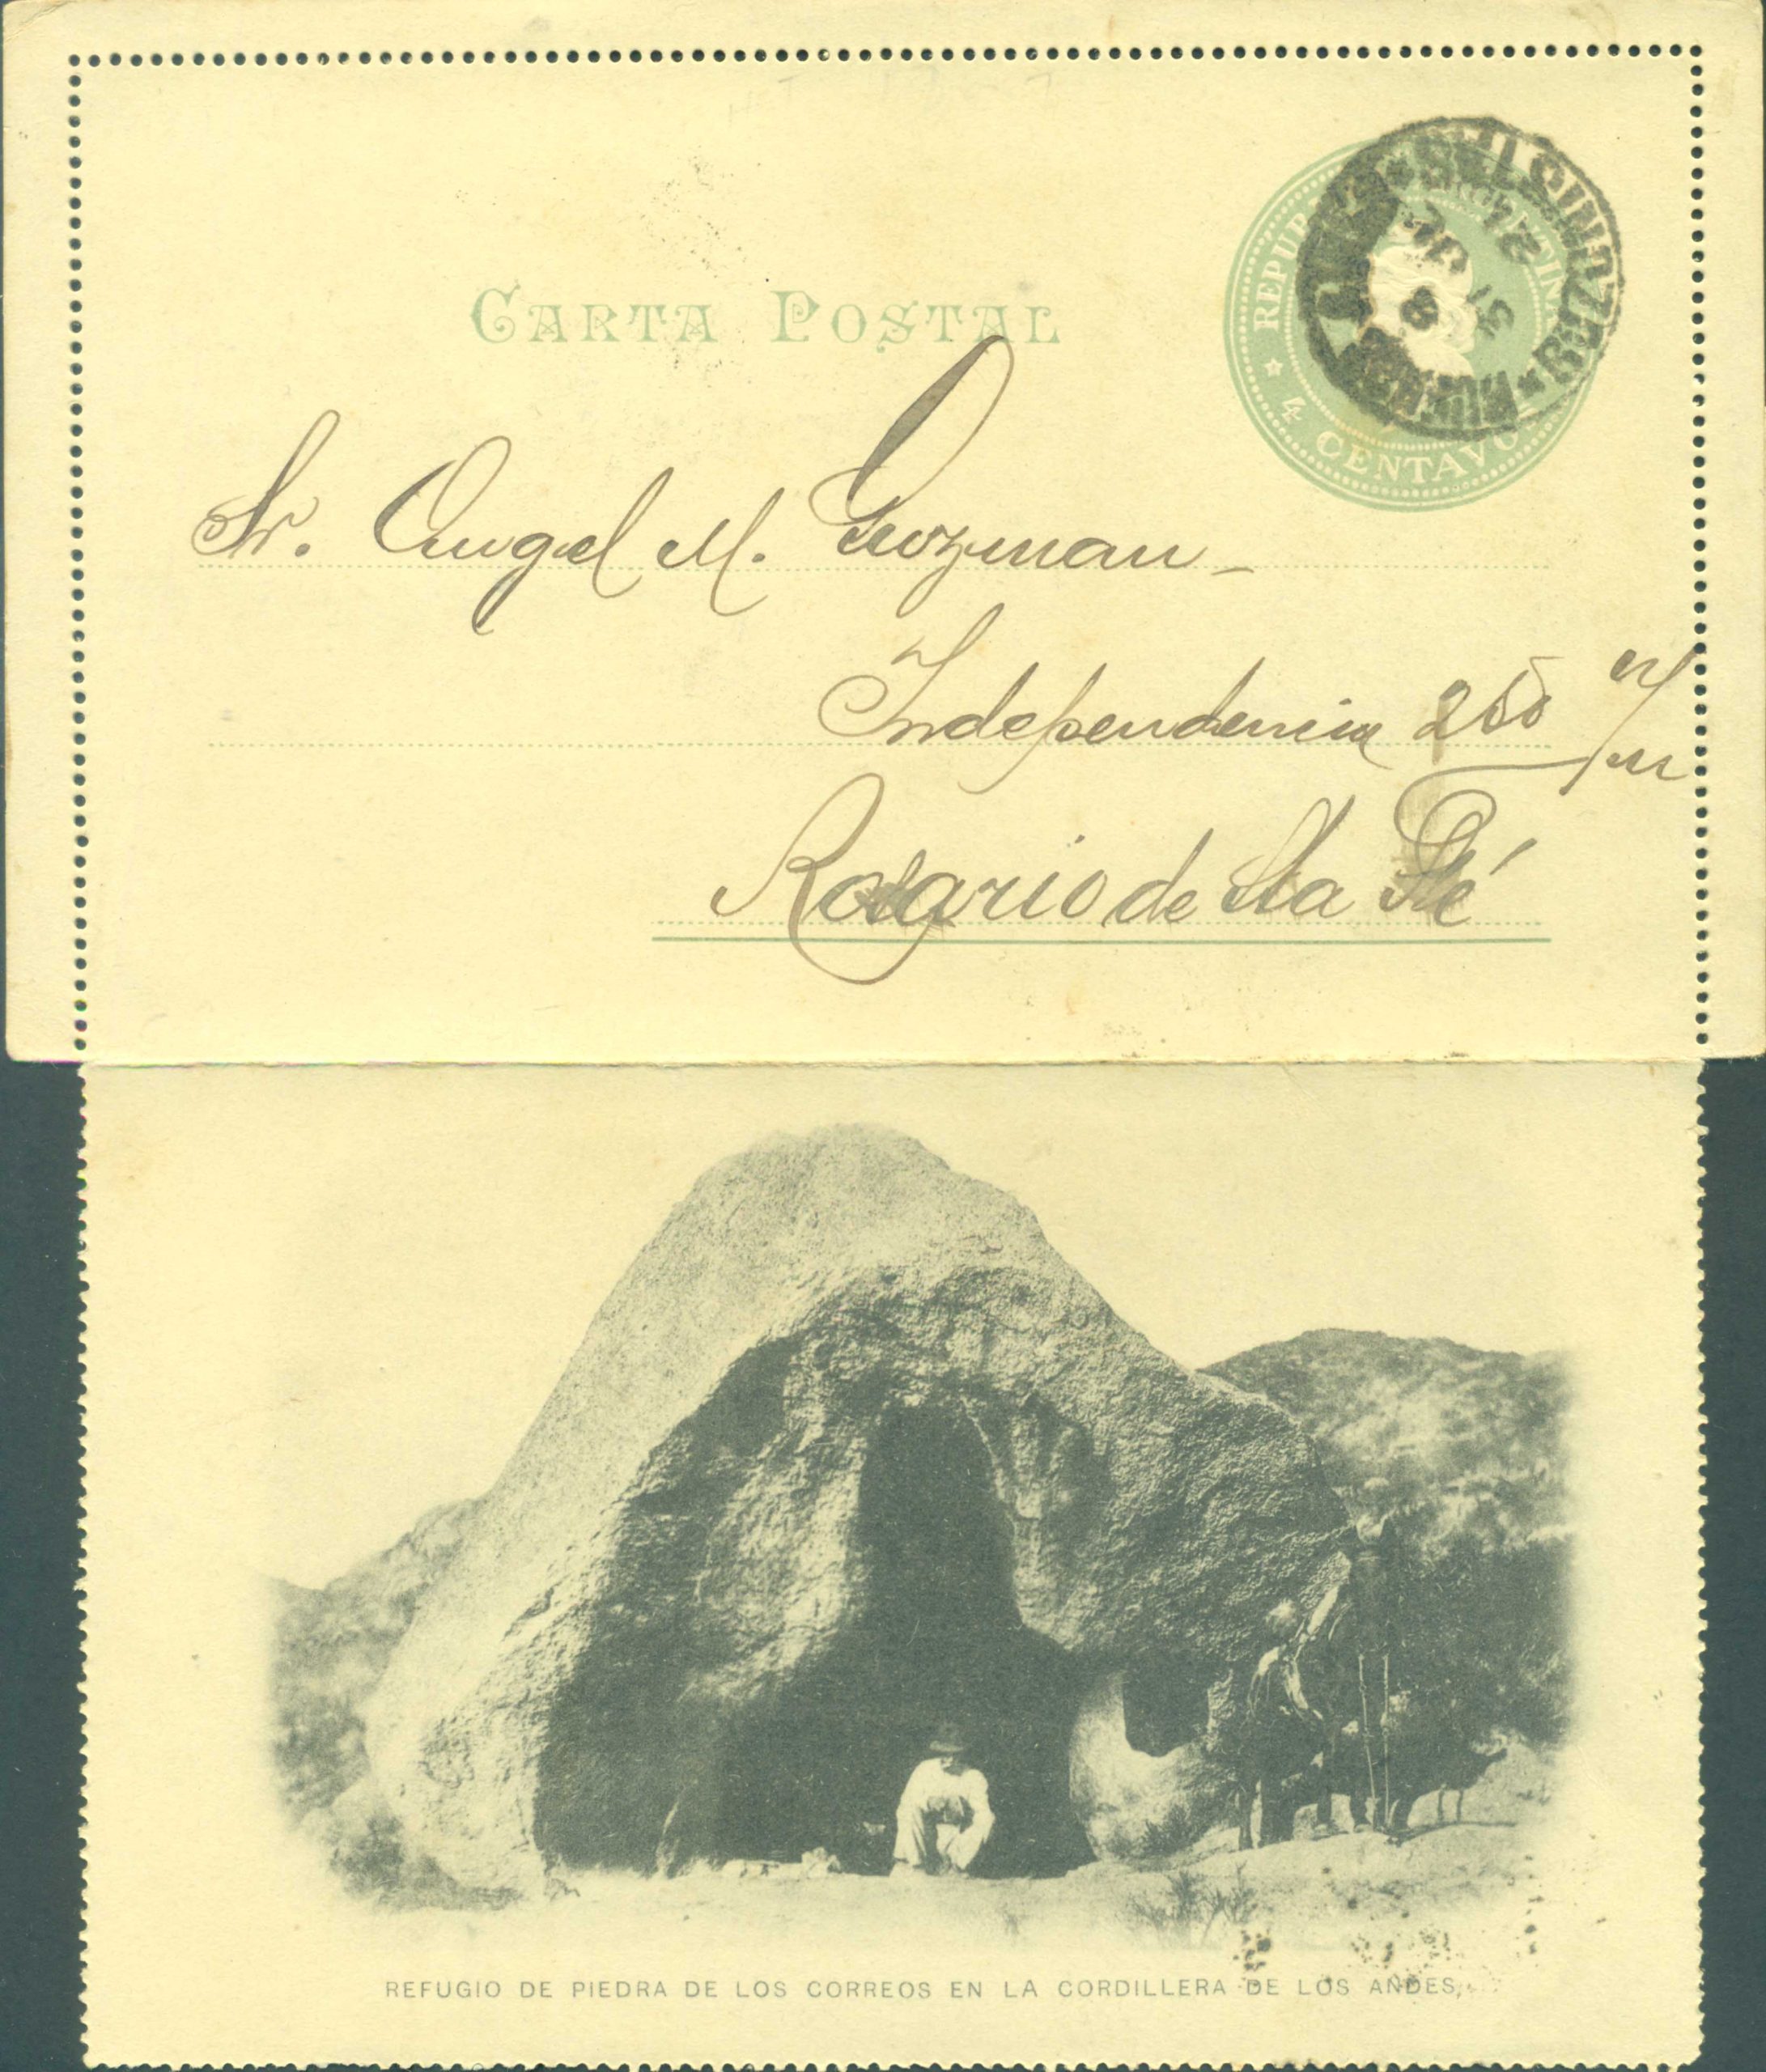 CARTA POSTAL
REPUBLICA ARGENTINA
4 CENTAVOS
Sr. Angel M. Guzman
Independencia 250
Rosario de Sta Fé
REFUGIO DE PIEDRA DE LOS CORREOS EN LA CORDILLERA DE LOS ANDES,